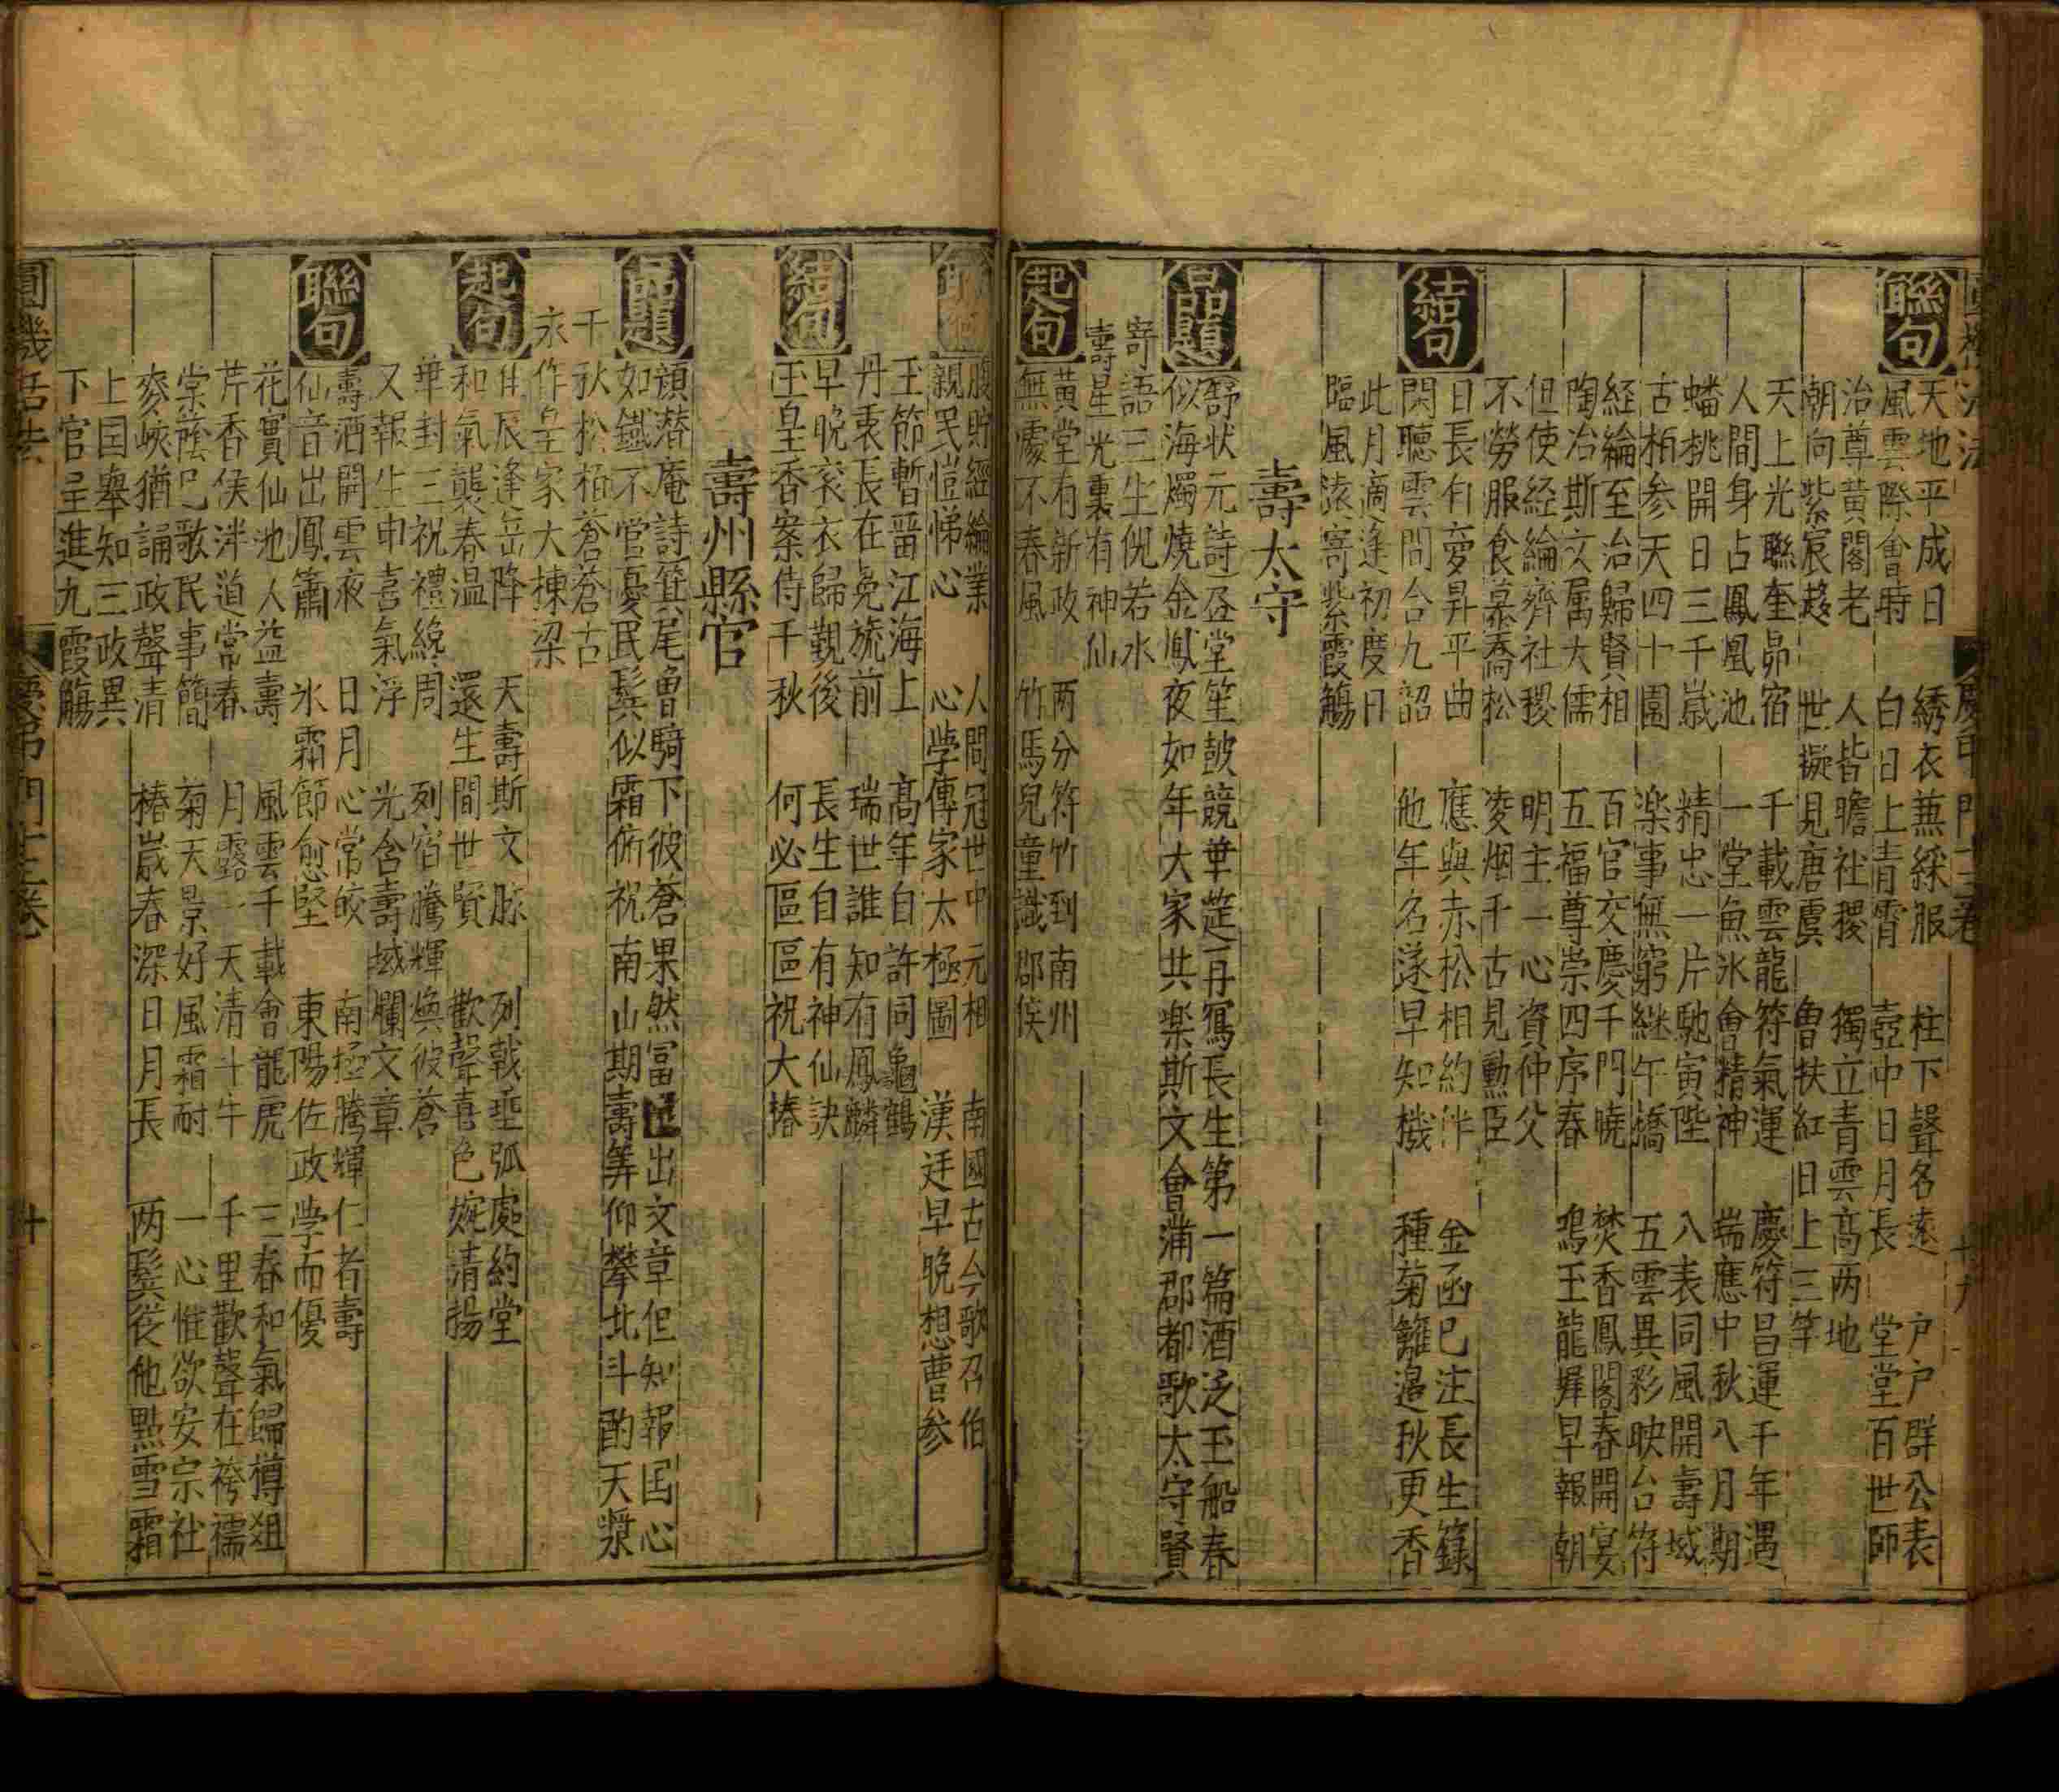 聯句
天地平成日 綉衣兼綵服 柱下聲名遠 户户群公表
風雲際會時 白日上青霄 壺中日月長 堂堂百世師
治尊黄閣老 人皆瞻社稷 獨立青雲高两地
朝向紫宸趍 世擬見唐虞 曾扶紅日上三竿
天上光聯奎昴宿 千載雲龍符氣運 慶符昌運千年遇
人間身占鳳凰池 一堂魚水會精神 端應中秋八月期
蟠桃開日三千歲 精忠一片馳寅陛 八表同風開壽域
古栢参天四十圍 楽事無窮継午橋 五雲異彩映台符
経綸至治歸賢相 百官交慶千門曉 焚香鳳閣春開宴
陶冶斯文属大儒 五福尊崇四序春 鳴玉龍墀早報朝
但使経綸齊社稷 明主一心資仲父
不勞服食慕喬松 凌烟千古見勲臣
結句
日長有夢昇平曲 應與赤松相約伴 金函已注長生籙
閑聽雲間合九韶 他年名遂早知機 種菊籬邉秋更香
此月適逢初度日
臨風遠寄紫霞觴
壽太守
品題
舒状元詩 堂笙皷競華筵一再寫長生第一篇酒泛玉船春
似海燭燒金鳳夜如年大家共楽斯文會蒲郡都歌太守賢
寄語三生倪若水
壽星光裏有神仙
起句
黄堂有新政 两分符竹到南州
無處不春風 竹馬兒童識郡侯
聯句
腹貯經綸業 人間冠世中元相 南國古今歌召伯
親民愷悌心 心學傳家太極圖 漢廷早晚想曹参
玉節暫畱江海上 髙年自許同龜鶴
丹衷長在冕旒前 瑞世誰知有鳳麟
結句
早晚衮衣歸觐後 長生自有神仙訣
玉皇香案侍千秋 何必區區祝大椿
壽州縣官
品題
顔潜庵詩箕尾曽騎下彼蒼果然冨 出文章但知報国心
如鐵不管憂民鬂似霜俯祝南山期壽筭仰攀北斗酌天漿
千秋松栢蒼蒼古
永作皇家大棟梁
起句
佳辰逢岳降 天壽斯文脉 列戟埀弧處約堂
和氣襲春温 還生間世賢 歡聲喜色婉清揚
華封三祝禮纔周 列宿騰輝奐彼蒼
又報生申喜氣浮 光含壽域爛文章
聯句
壽酒開雲液 日月心常皎 南極騰輝仁者壽
仙音出鳳簫 氷霜節愈堅 東陽佐政学而優
花實仙池人益壽 風雲千載會龍虎 三春和氣歸樽俎
芹香侯泮道常春 月露一天清斗牛 千里歡聲在袴襦
棠蔭已歌民事簡 菊天景好風霜耐 一心惟欲安宗社
麥岐猶誦政聲清 椿嵗春深日月長 两鬂従他點雪霜
上国舉知三政異
下官呈進九霞觴
圓機活法 慶弔門十三卷